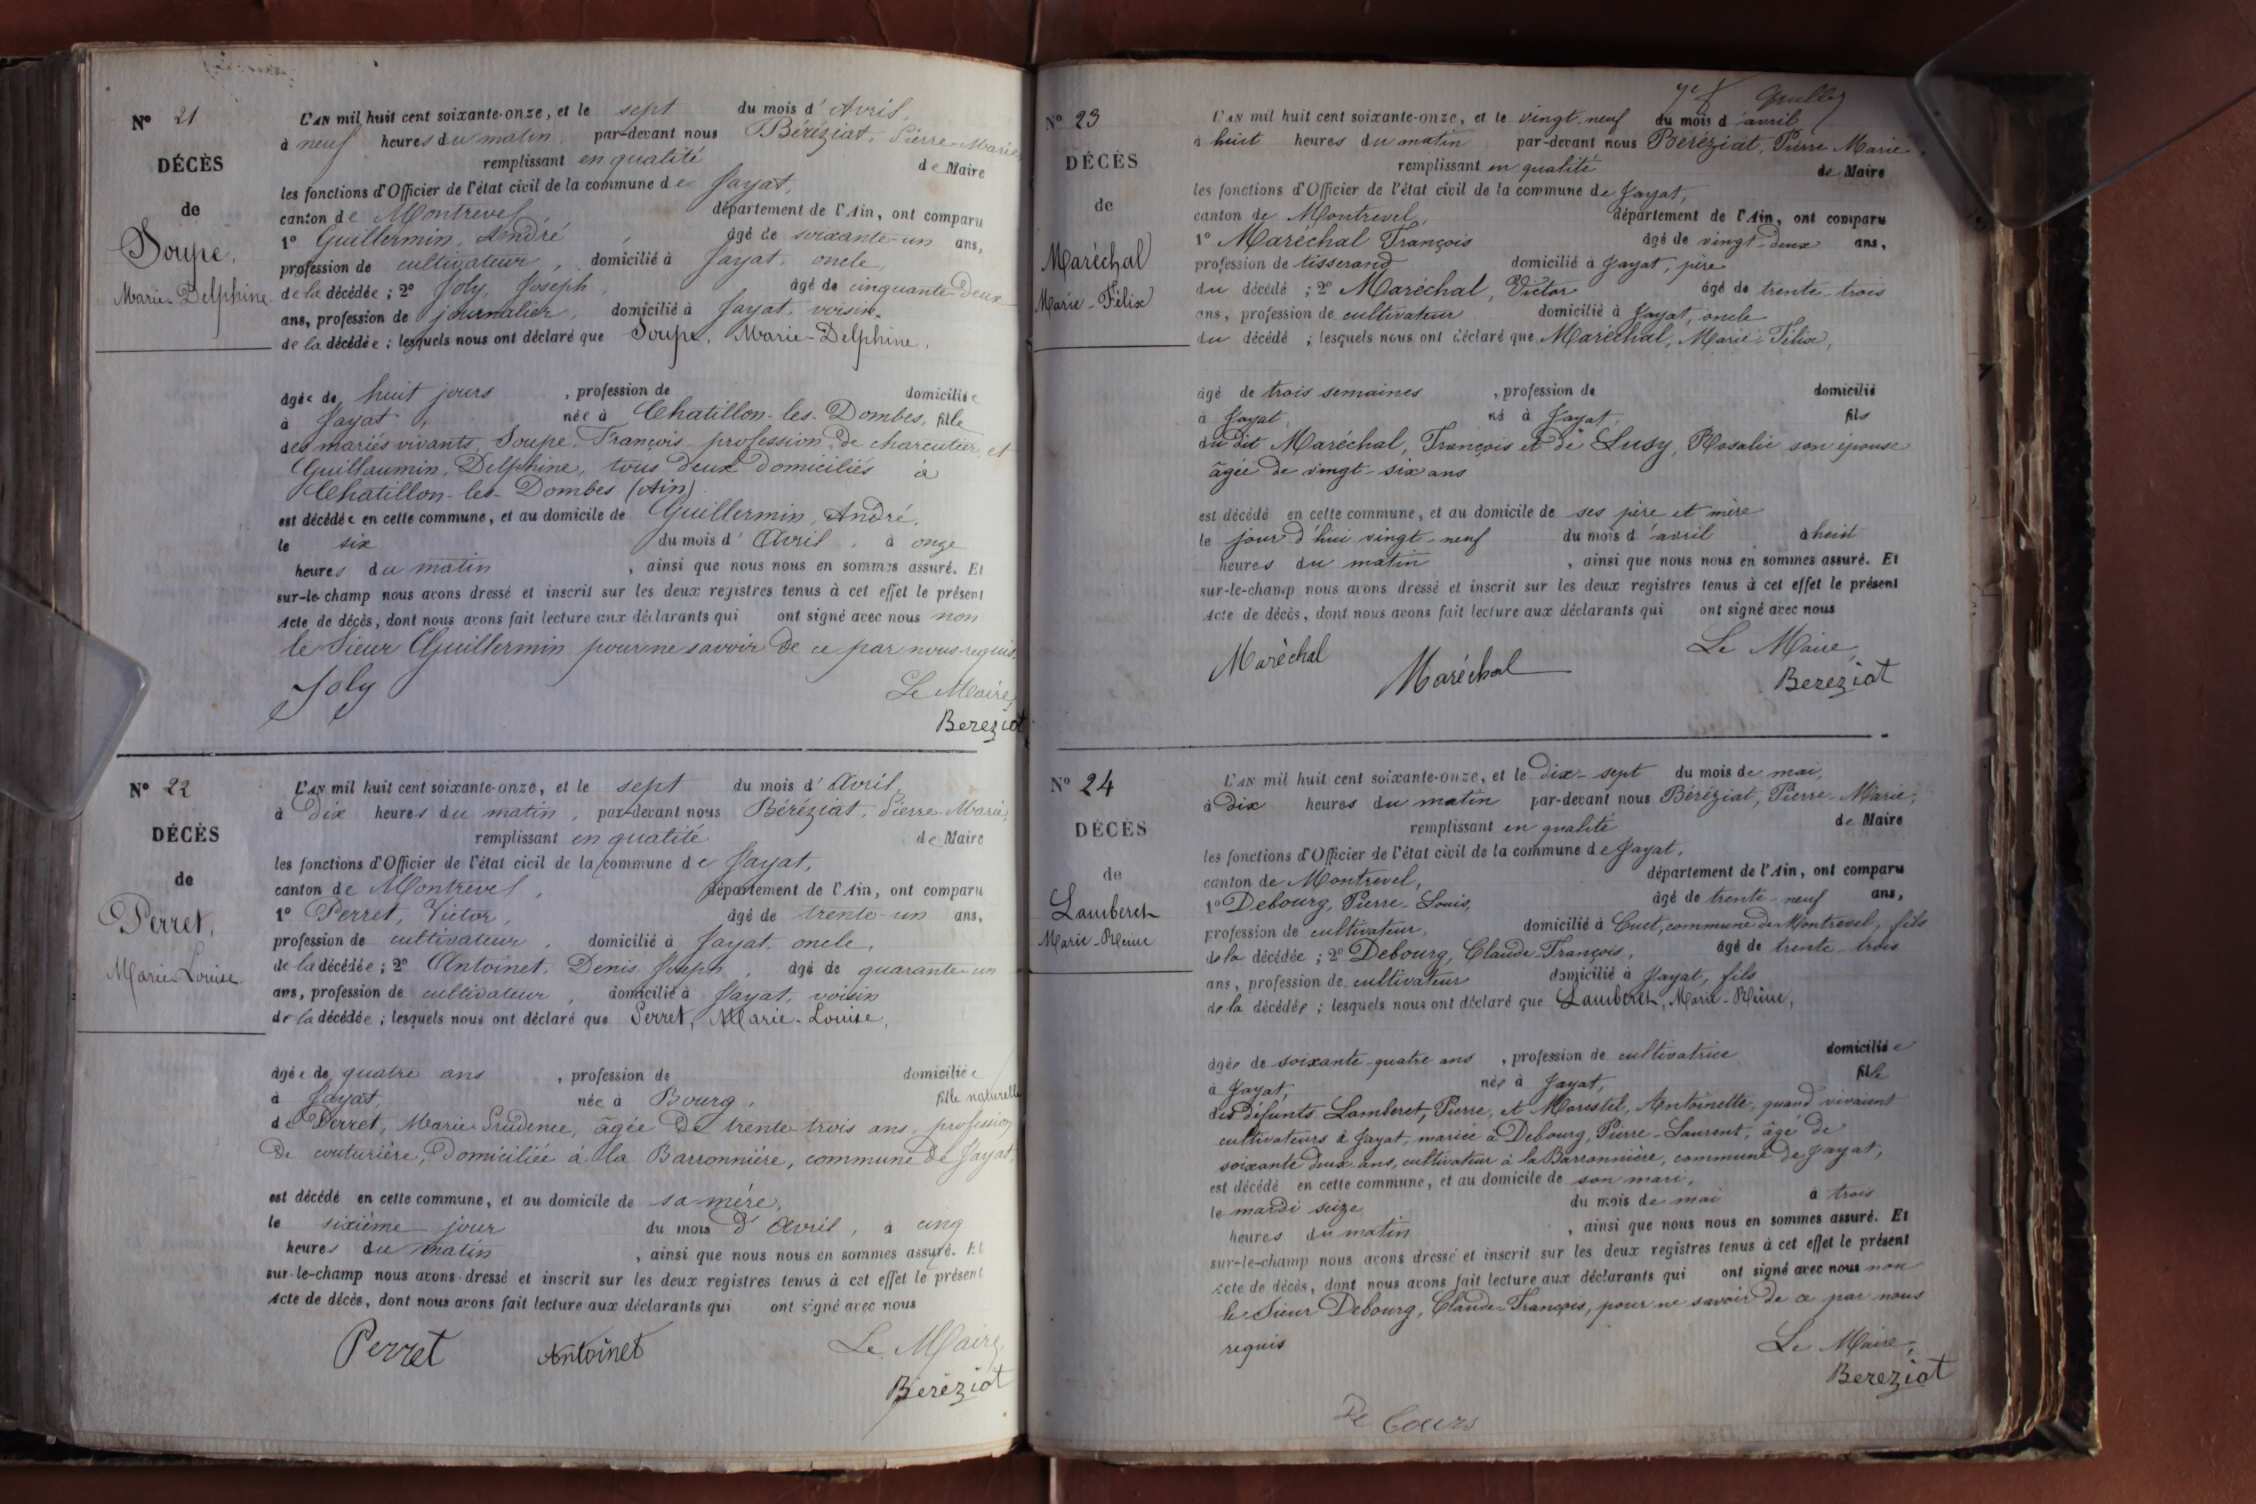 N° 21
DÉCÈS
de
Soupe,
Marie-Delphine
L'AN mil huit cent soixante-onze, et le sept du mois d'Avril,
à neuf heures du matin, par-devant nous Béréziat, Pierre-Marie,
remplissant en qualité de Maire
les fonctions d'Officier de l'état civil de la commune de Jayat,
canton de Montrevel, département de l'Ain, ont comparu
1° Guillermin, André, âgé de soixante-un ans,
profession de cultivateur, domicilié à Jayat, oncle,
de la décédée ; 2° Joly, Joseph, âgé de cinquante-deux
ans, profession de journalier, domicilié à Jayat, voisin
de la décédée ; lesquels nous ont déclaré que Soupe, Marie-Delphine,
âgée de huit jours, profession de domiciliée
à Jayat, née à Chatillon-les-Dombes, fille
des mariés vivants Soupe, François profession de charcutier, et
Guillaumin, Delphine, tous deux domiciliés à
Chatillon-les-Dombes (Ain)
est décédée en cette commune, et au domicile de Guillermin, André,
le six du mois d'Avril, à onze
heures du matin, ainsi que nous nous en sommes assuré. Et
sur-le-champ nous avons dressé et inscrit sur les deux registres tenus à cet effet le présent
Acte de décès, dont nous avons fait lecture aux déclarants qui ont signé avec nous non
le Sieur Guillermin pour ne savoir de ce par nous requis.
Joly Le Maire,
Bereziat
N° 22
DÉCÈS
de
Perret,
Marie-Louise
L'AN mil huit cent soixante-onze, et le sept du mois d'Avril,
à dix heures du matin, par-devant nous Béréziat, Pierre-Marie,
remplissant en qualité de Maire
les fonctions d'Officier de l'état civil de la commune de Jayat,
canton de Montrevel, département de l'Ain, ont comparu
1° Perret, Victor, âgé de trente-un ans,
profession de cultivateur, domicilié à Jayat, oncle,
de la décédée ; 2° Antoinet, Denis Joseph, âgé de quarante-un
ans, profession de cultivateur, domicilié à Jayat, voisin
de la décédée ; lesquels nous ont déclaré que Perret, Marie-Louise,
âgée de quatre ans, profession de domiciliée
à Jayat, née à Bourg, fille naturelle
de Perret, Marie Prudence, âgée de trente-trois ans, profession
de couturière, domiciliée à la Barronnière, commune de Jayat,
est décédé en cette commune, et au domicile de sa mère,
le sixième jour du mois d'Avril, à cinq
heures du matin, ainsi que nous nous en sommes assuré. Et
sur-le-champ nous avons dressé et inscrit sur les deux registres tenus à cet effet le présent
Acte de décès, dont nous avons fait lecture aux déclarants qui ont signé avec nous
Perret Antoinet Le Maire,
Béréziat
N° 23
DÉCÈS
de
Maréchal
Marie-Félix
L'AN mil huit cent soixante-onze, et le vingt-neuf du mois d'avril
à huit heures du matin par-devant nous Béréziat, Pierre Marie,
remplissant en qualité de Maire
les fonctions d'Officier de l'état civil de la commune de Jayat,
canton de Montrevel, département de l'Ain, ont comparu
1° Maréchal François âgé de vingt-deux ans,
profession de tisserand domicilié à Jayat, père
du décédé ; 2° Maréchal, Victor âgé de trente-trois
ans, profession de cultivateur domicilié à Jayat, oncle
du décédé ; lesquels nous ont déclaré que Maréchal, Marie-Félix,
âgé de trois semaines, profession de domicilié
à Jayat, né à Jayat, fils
du dit Maréchal, François et de Lusy, Rosalie son épouse
âgée de vingt-six ans
est décédé en cette commune, et au domicile de ses père et mère
le jour d'hui vingt-neuf du mois d'avril à huit
heures du matin, ainsi que nous nous en sommes assuré. Et
sur-le-champ nous avons dressé et inscrit sur les deux registres tenus à cet effet le présent
Acte de décès, dont nous avons fait lecture aux déclarants qui ont signé avec nous
Maréchal Maréchal Le Maire,
Bereziat
N° 24
DÉCÈS
de
Lamberet
Marie-Reine
L'AN mil huit cent soixante-onze, et le dix-sept du mois de mai,
à dix heures du matin par-devant nous Béréziat, Pierre-Marie,
remplissant en qualité de Maire
les fonctions d'Officier de l'état civil de la commune de Jayat,
canton de Montrevel, département de l'Ain, ont comparu
1° Debourg, Pierre-Louis, âgé de trente-neuf ans,
profession de cultivateur, domicilié à Cuet, commune de Montrevel, fils
de la décédée ; 2° Debourg, Claude-François, âgé de trente-trois
ans, profession de cultivateur domicilié à Jayat, fils
de la décédée ; lesquels nous ont déclaré que Lamberet, Marie-Reine,
âgée de soixante-quatre ans, profession de cultivatrice domiciliée
à Jayat, née à Jayat, fille
des défunts Lamberet, Pierre, et Morestel, Antoinette, quand vivaient
cultivateurs à Jayat, mariée à Debourg, Pierre-Laurent, âgé de
soixante deux ans, cultivateur à la Barronnière, commune de Jayat,
est décédé en cette commune, et au domicile de son mari,
le mardi seize du mois de mai à trois
heures du matin, ainsi que nous nous en sommes assuré. Et
sur-le-champ nous avons dressé et inscrit sur les deux registres tenus à cet effet le présent
Acte de décès, dont nous avons fait lecture aux déclarants qui ont signé avec nous non
le Sieur Debourg, Claude-François, pour ne savoir de ce par nous
requis
Le Maire,
Bereziat